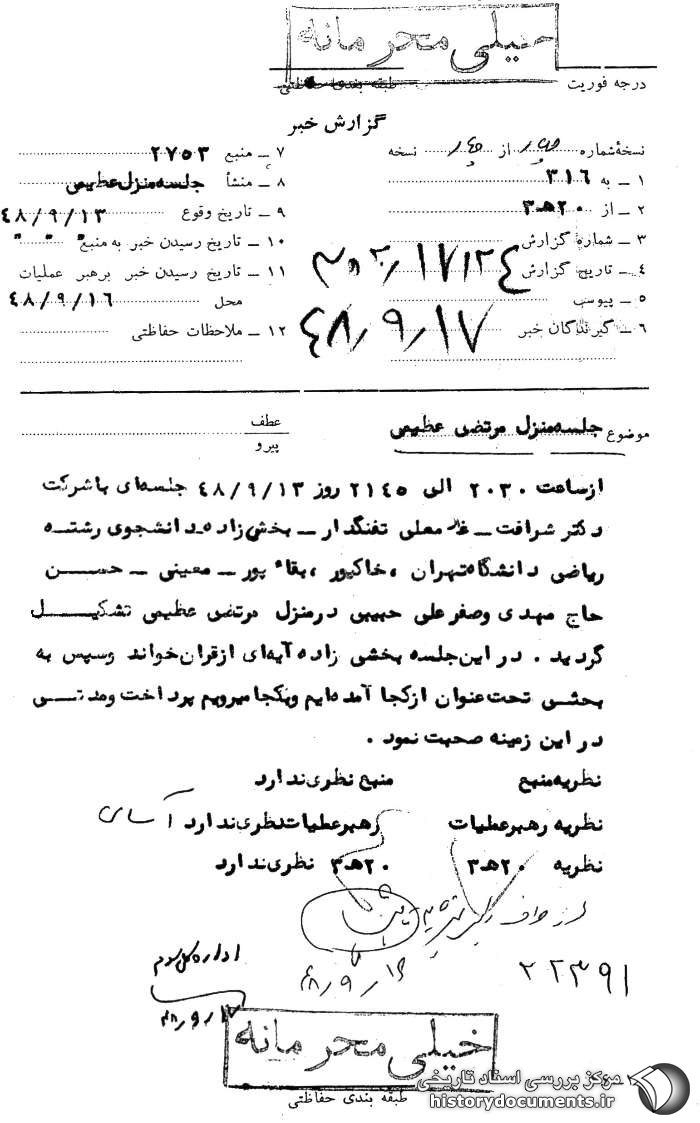 خیلی محرمانه
درجه فوریت
طبقه بندی حفاظتی
گزارش خبر
نسخهٔ شماره از نسخه
۱ ـ به ۳۱۶
۲ ـ از ۲۰هـ۳
۳ ـ شماره گزارش
۴ ـ تاریخ گزارش
۵ ـ پیوست
۶ ـ گیرندگان خبر
۴۸/۹/۱۷
۷ ـ منبع ۲۷۵۳
۸ ـ منشأ جلسه منزل عظیمی
۹ ـ تاریخ وقوع ۴۸/۹/۱۳
۱۰ ـ تاریخ رسیدن خبر به منبع " " "
۱۱ ـ تاریخ رسیدن خبر برهبر عملیات
محل ۴۸/۹/۱۶
۱۲ ـ ملاحظات حفاظتی
موضوع جلسه منزل مرتضی عظیمی
عطف
پیرو
از ساعت ۲۰۳۰ الی ۲۱۴۵ روز ۴۸/۹/۱۳ جلسه‌ای با شرکت
دکتر شرافت ـ معلی تفنگدار ـ بخشی زاده دانشجوی رشته
ریاضی دانشگاه تهران ، خاکپور ، بقاء پور ـ معینی ـ حسن
حاج مهدی و صفر علی حبیبی در منزل مرتضی عظیمی تشکیل
گردید . در این جلسه بخشی زاده آیه‌ای از قران خواند وسپس به
بحثی تحت عنوان از کجا آمده‌ایم و بکجا میرویم پرداخت و مدتی
در این زمینه صحبت نمود .
نظریه منبع منبع نظری ندارد
نظریه رهبر عملیات رهبر عملیات نظری ندارد
نظریه ۲۰هـ۳ ۲۰هـ۳ نظری ندارد
اداره کل سوم
۲۲۳۹۱
خیلی محرمانه
طبقه بندی حفاظتی
مرکز بررسی اسناد تاریخی
historydocuments.ir